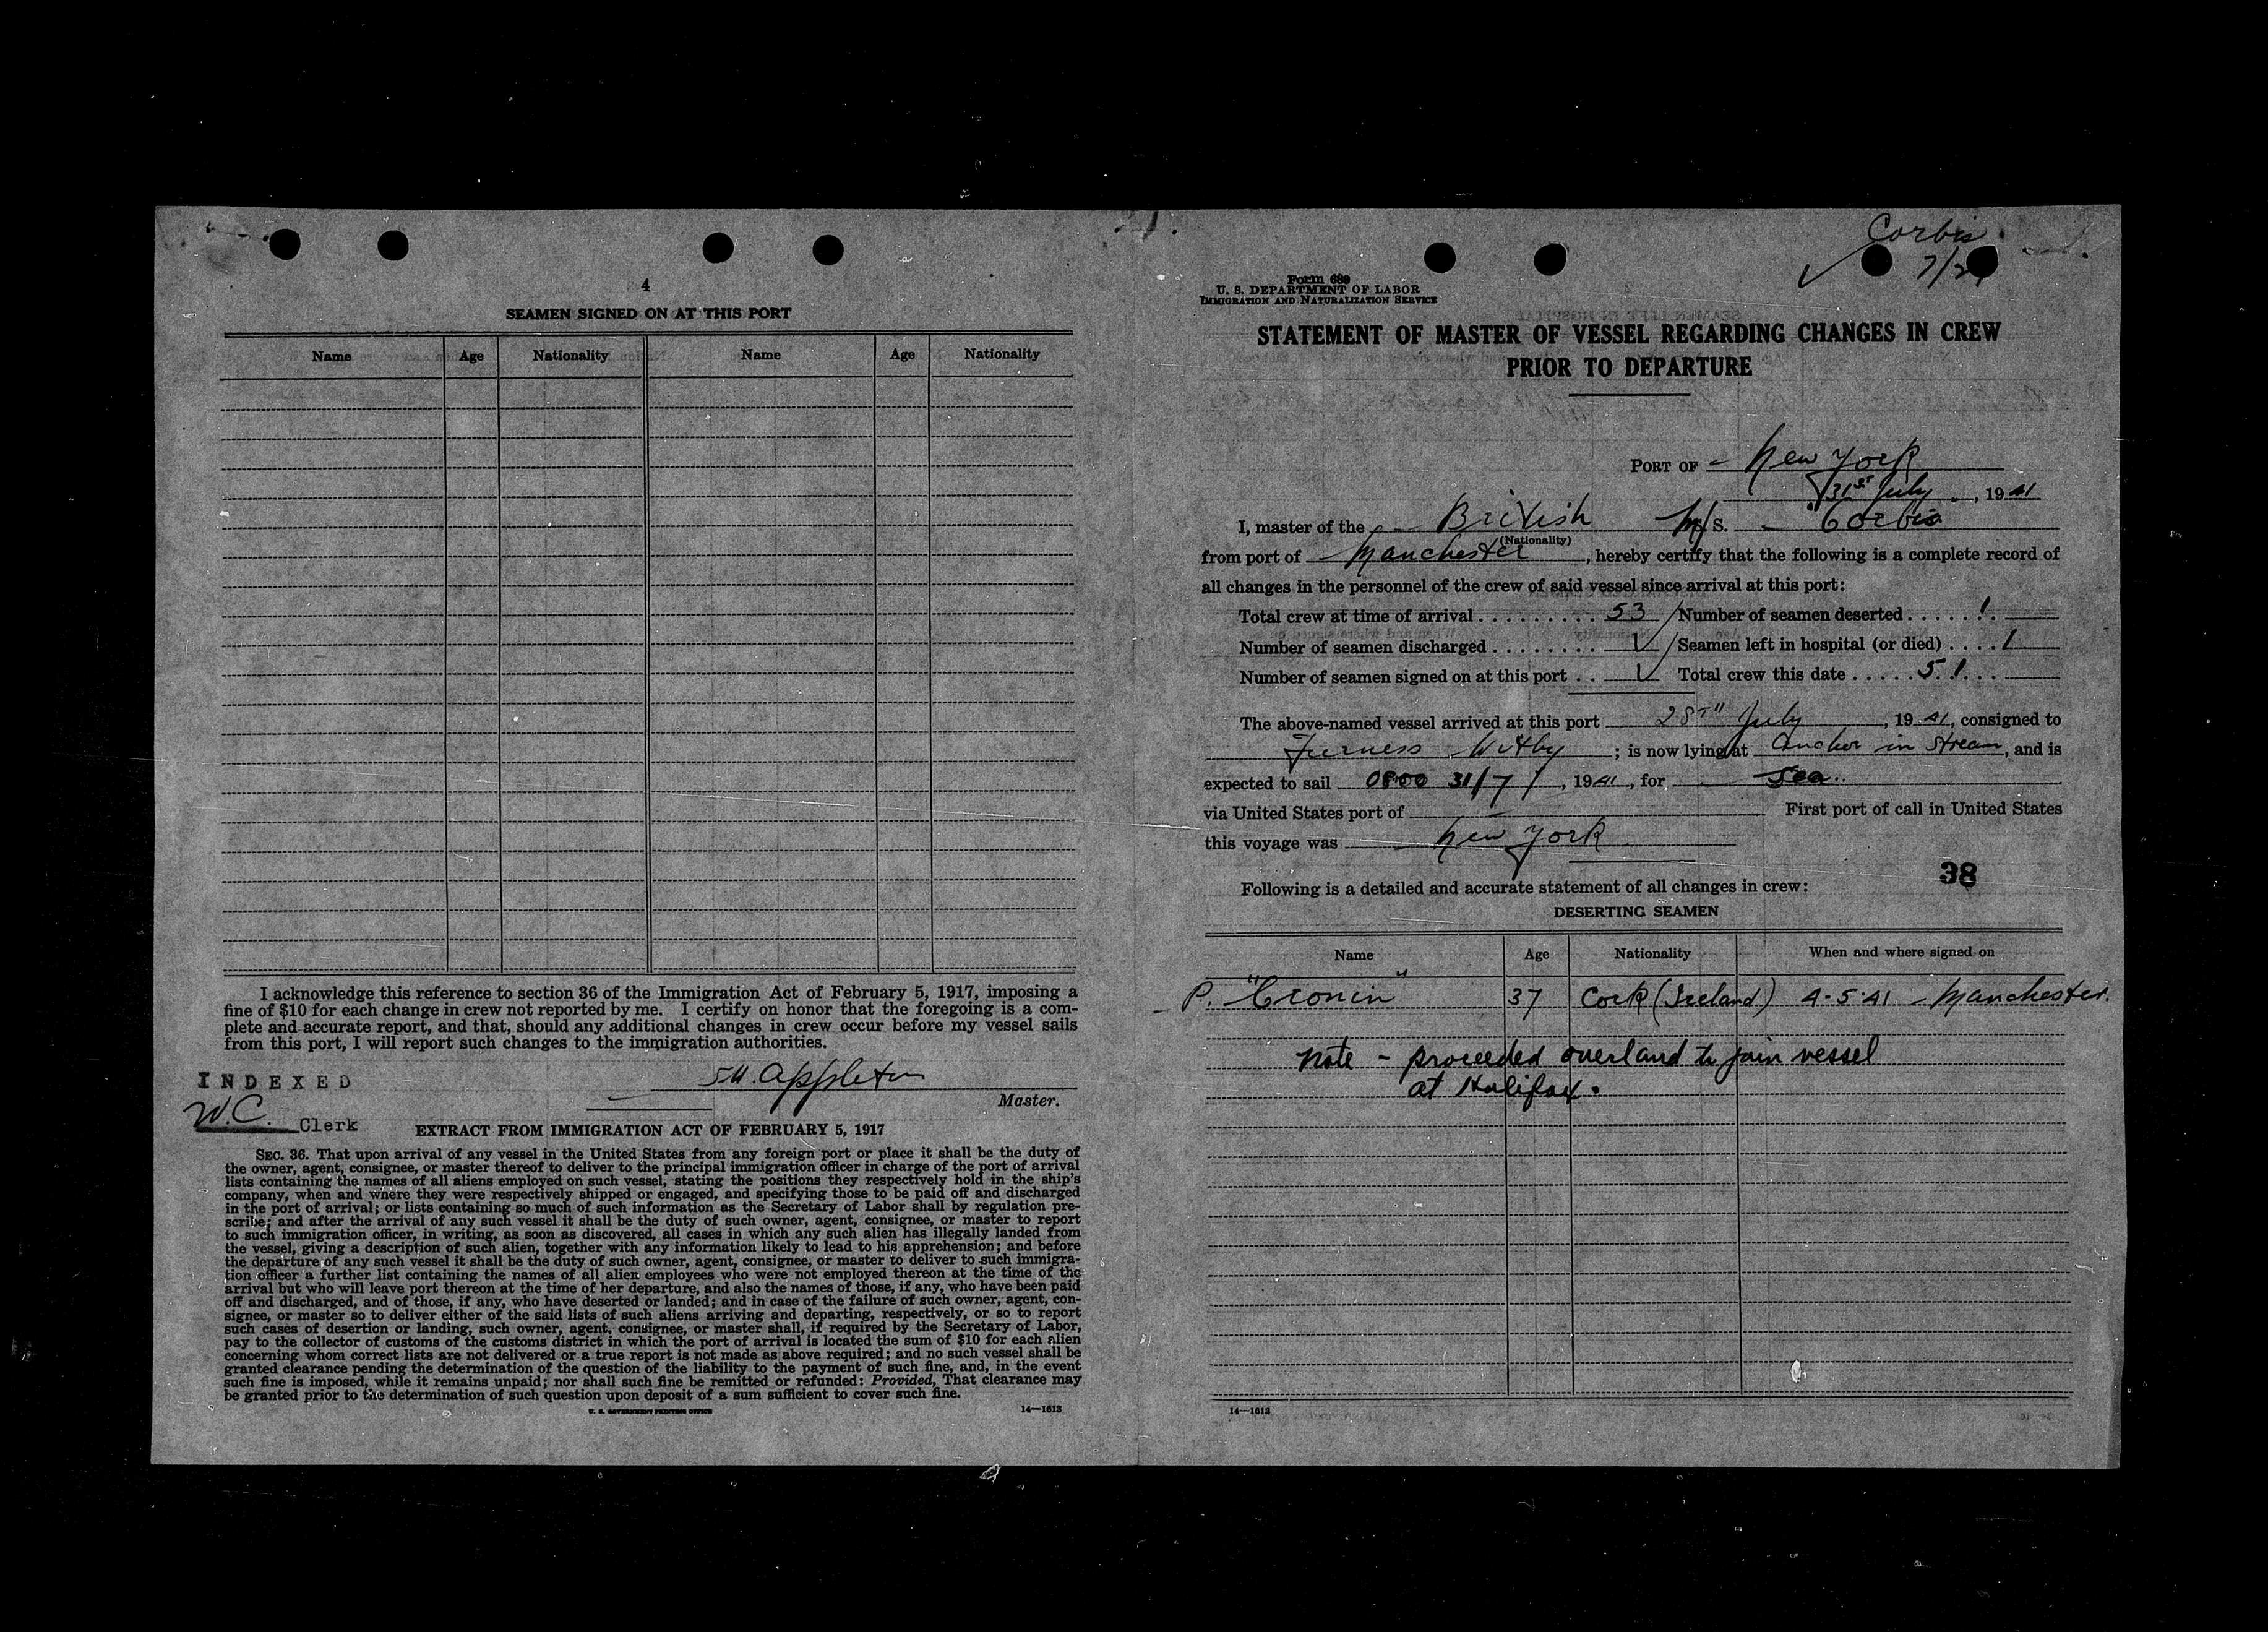 4
SEAMEN SIGNED ON AT THIS PORT
Name Age Nationality Name Age Nationality
I acknowledge this reference to section 36 of the Immigration Act of February 5, 1917, imposing a
fine of $10 for each change in crew not reported by me. I certify on honor that the foregoing is a com-
plete and accurate report, and that, should any additional changes in crew occur before my vessel sails
from this port, I will report such changes to the immigration authorities.
INDEXED
Appleton
Master.
W.C. Clerk
EXTRACT FROM IMMIGRATION ACT OF FEBRUARY 5, 1917
SEC. 36. That upon arrival of any vessel in the United States from any foreign port or place it shall be the duty of
the owner, agent, consignee, or master thereof to deliver to the principal immigration officer in charge of the port of arrival
lists containing the names of all aliens employed on such vessel, stating the positions they respectively hold in the ship's
company, when and where they were respectively shipped or engaged, and specifying those to be paid off and discharged
in the port of arrival; or lists containing so much of such information as the Secretary of Labor shall by regulation pre-
scribe; and after the arrival of any such vessel it shall be the duty of such owner, agent, consignee, or master to report
to such immigration officer, in writing, as soon as discovered, all cases in which any such alien has illegally landed from
the vessel, giving a description of such alien, together with any information likely to lead to his apprehension; and before
the departure of any such vessel it shall be the duty of such owner, agent, consignee, or master to deliver to such immigra-
tion officer a further list containing the names of all alien employees who were not employed thereon at the time of the
arrival but who will leave port thereon at the time of her departure, and also the names of those, if any, who have been paid
off and discharged, and of those, if any, who have deserted or landed; and in case of the failure of such owner, agent, con-
signee, or master so to deliver either of the said lists of such aliens arriving and departing, respectively, or so to report
such cases of desertion or landing, such owner, agent, consignee, or master shall, if required by the Secretary of Labor,
pay to the collector of customs of the customs district in which the port of arrival is located the sum of $10 for each alien
concerning whom correct lists are not delivered or a true report is not made as above required; and no such vessel shall be
granted clearance pending the determination of the question of the liability to the payment of such fine, and, in the event
such fine is imposed, while it remains unpaid; nor shall such fine be remitted or refunded: Provided, That clearance may
be granted prior to the determination of such question upon deposit of a sum sufficient to cover such fine.
U. S. GOVERNMENT PRINTING OFFICE 14—1613
Corbis
Form 689
U. S. DEPARTMENT OF LABOR
IMMIGRATION AND NATURALIZATION SERVICE
STATEMENT OF MASTER OF VESSEL REGARDING CHANGES IN CREW
PRIOR TO DEPARTURE
PORT OF New York
31st July, 1941
I, master of the British M/S. "Corbis
(Nationality)
from port of Manchester, hereby certify that the following is a complete record of
all changes in the personnel of the crew of said vessel since arrival at this port:
Total crew at time of arrival . . . . . . . . . 53 Number of seamen deserted . . . . . 1.
Number of seamen discharged . . . . . . . . ✓ Seamen left in hospital (or died) . . . . 1
Number of seamen signed on at this port . . ✓ Total crew this date . . . . . 51. . .
The above-named vessel arrived at this port 28TH July, 1941, consigned to
Furness Withy; is now lying at anchor in stream, and is
expected to sail 0800 31/7/, 1941, for Sea.
via United States port of First port of call in United States
this voyage was New York
38
Following is a detailed and accurate statement of all changes in crew:
DESERTING SEAMEN
Name Age Nationality When and where signed on
P. "Cronin" 37 Cork (Ireland) 4-5-41 - Manchester.
Note - proceeded overland to join vessel
at Halifax.
14—1613